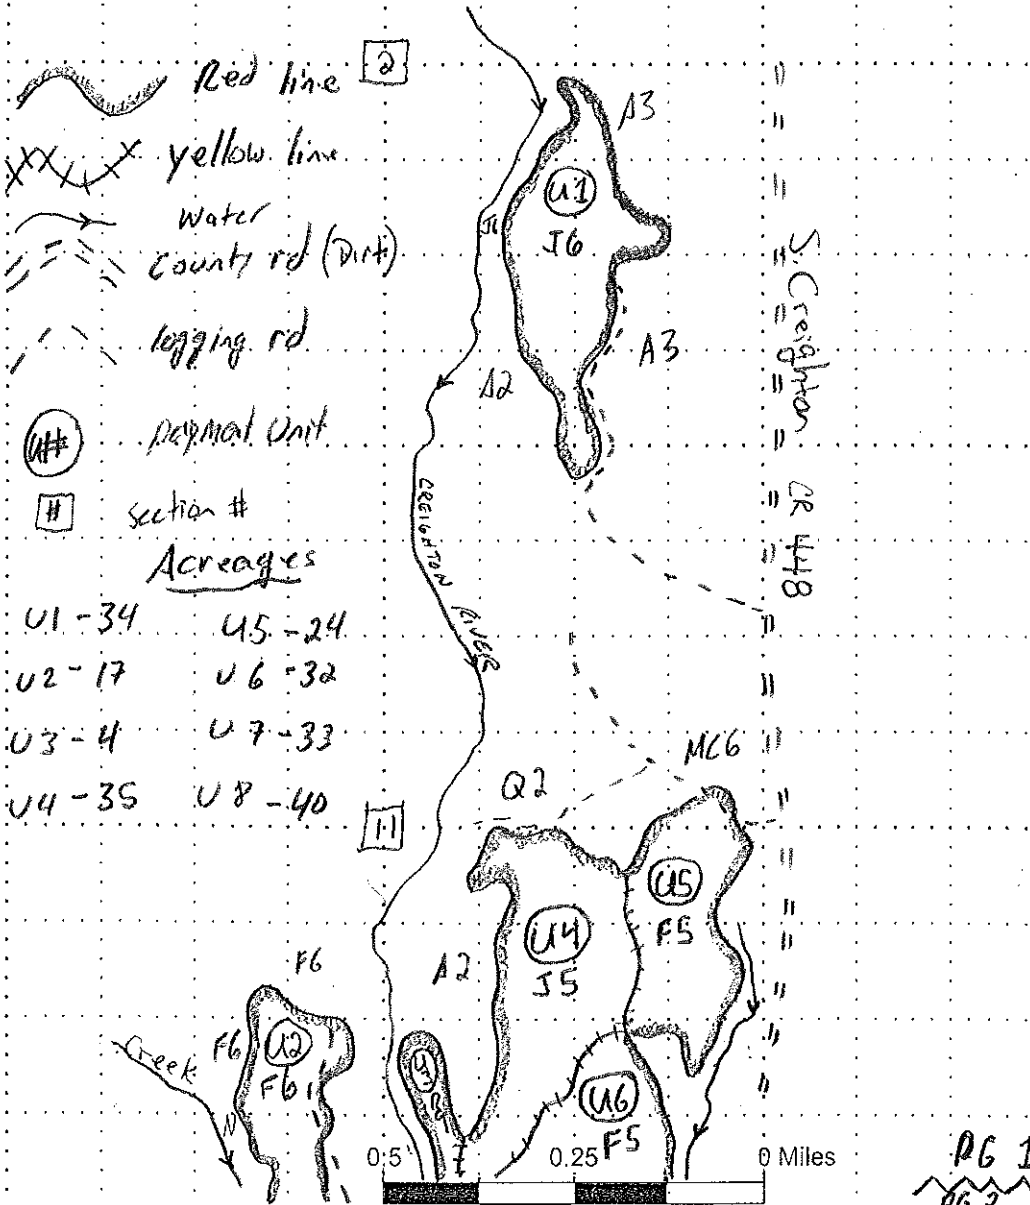 Red line
2
yellow line
water
County rd (Dirt)
logging rd
U# payment Unit
# section #
Acreages
U1 - 34 U5 - 24
U2 - 17 U6 - 32
U3 - 4 U7 - 33
U4 - 35 U8 - 40
A3
U1
J6
J6
A3
A2
S. Creighton CR 448
CREIGHTON RIVER
MC6
Q2
11
U5
F5
U4
J5
A2
F6
F6
U2
F6
Creek
U3
U6
F5
0.5 0.25 0 Miles
PG 1
PG 2